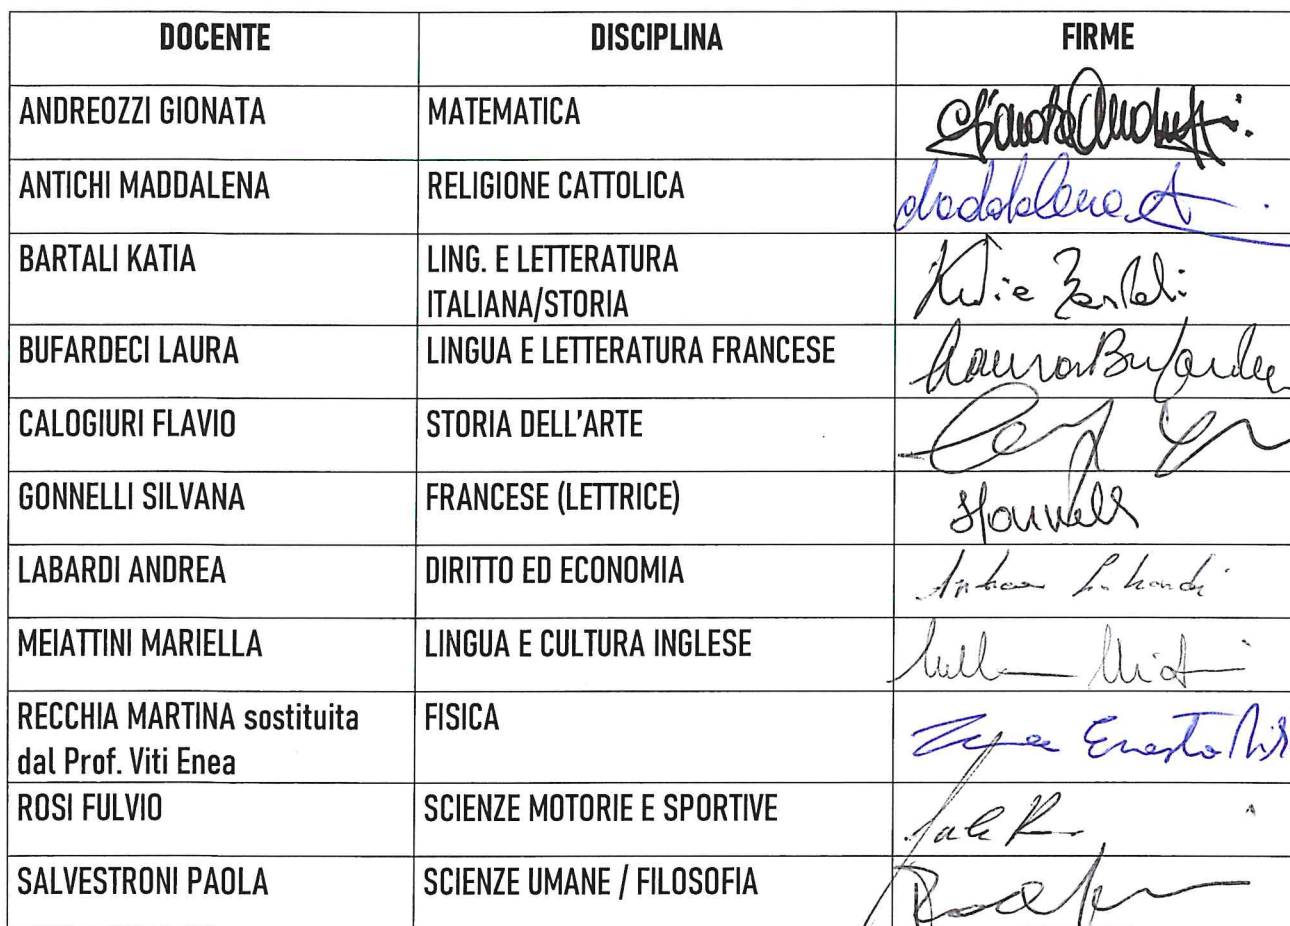 DOCENTE DISCIPLINA FIRME
ANDREOZZI GIONATA MATEMATICA
ANTICHI MADDALENA RELIGIONE CATTOLICA Maddalena A
BARTALI KATIA LING. E LETTERATURA Katia Bartali
ITALIANA/STORIA
BUFARDECI LAURA LINGUA E LETTERATURA FRANCESE Laura Bufardeci
CALOGIURI FLAVIO STORIA DELL'ARTE
GONNELLI SILVANA FRANCESE (LETTRICE)
LABARDI ANDREA DIRITTO ED ECONOMIA Andrea Labardi
MEIATTINI MARIELLA LINGUA E CULTURA INGLESE
RECCHIA MARTINA sostituita FISICA
dal Prof. Viti Enea
ROSI FULVIO SCIENZE MOTORIE E SPORTIVE
SALVESTRONI PAOLA SCIENZE UMANE / FILOSOFIA